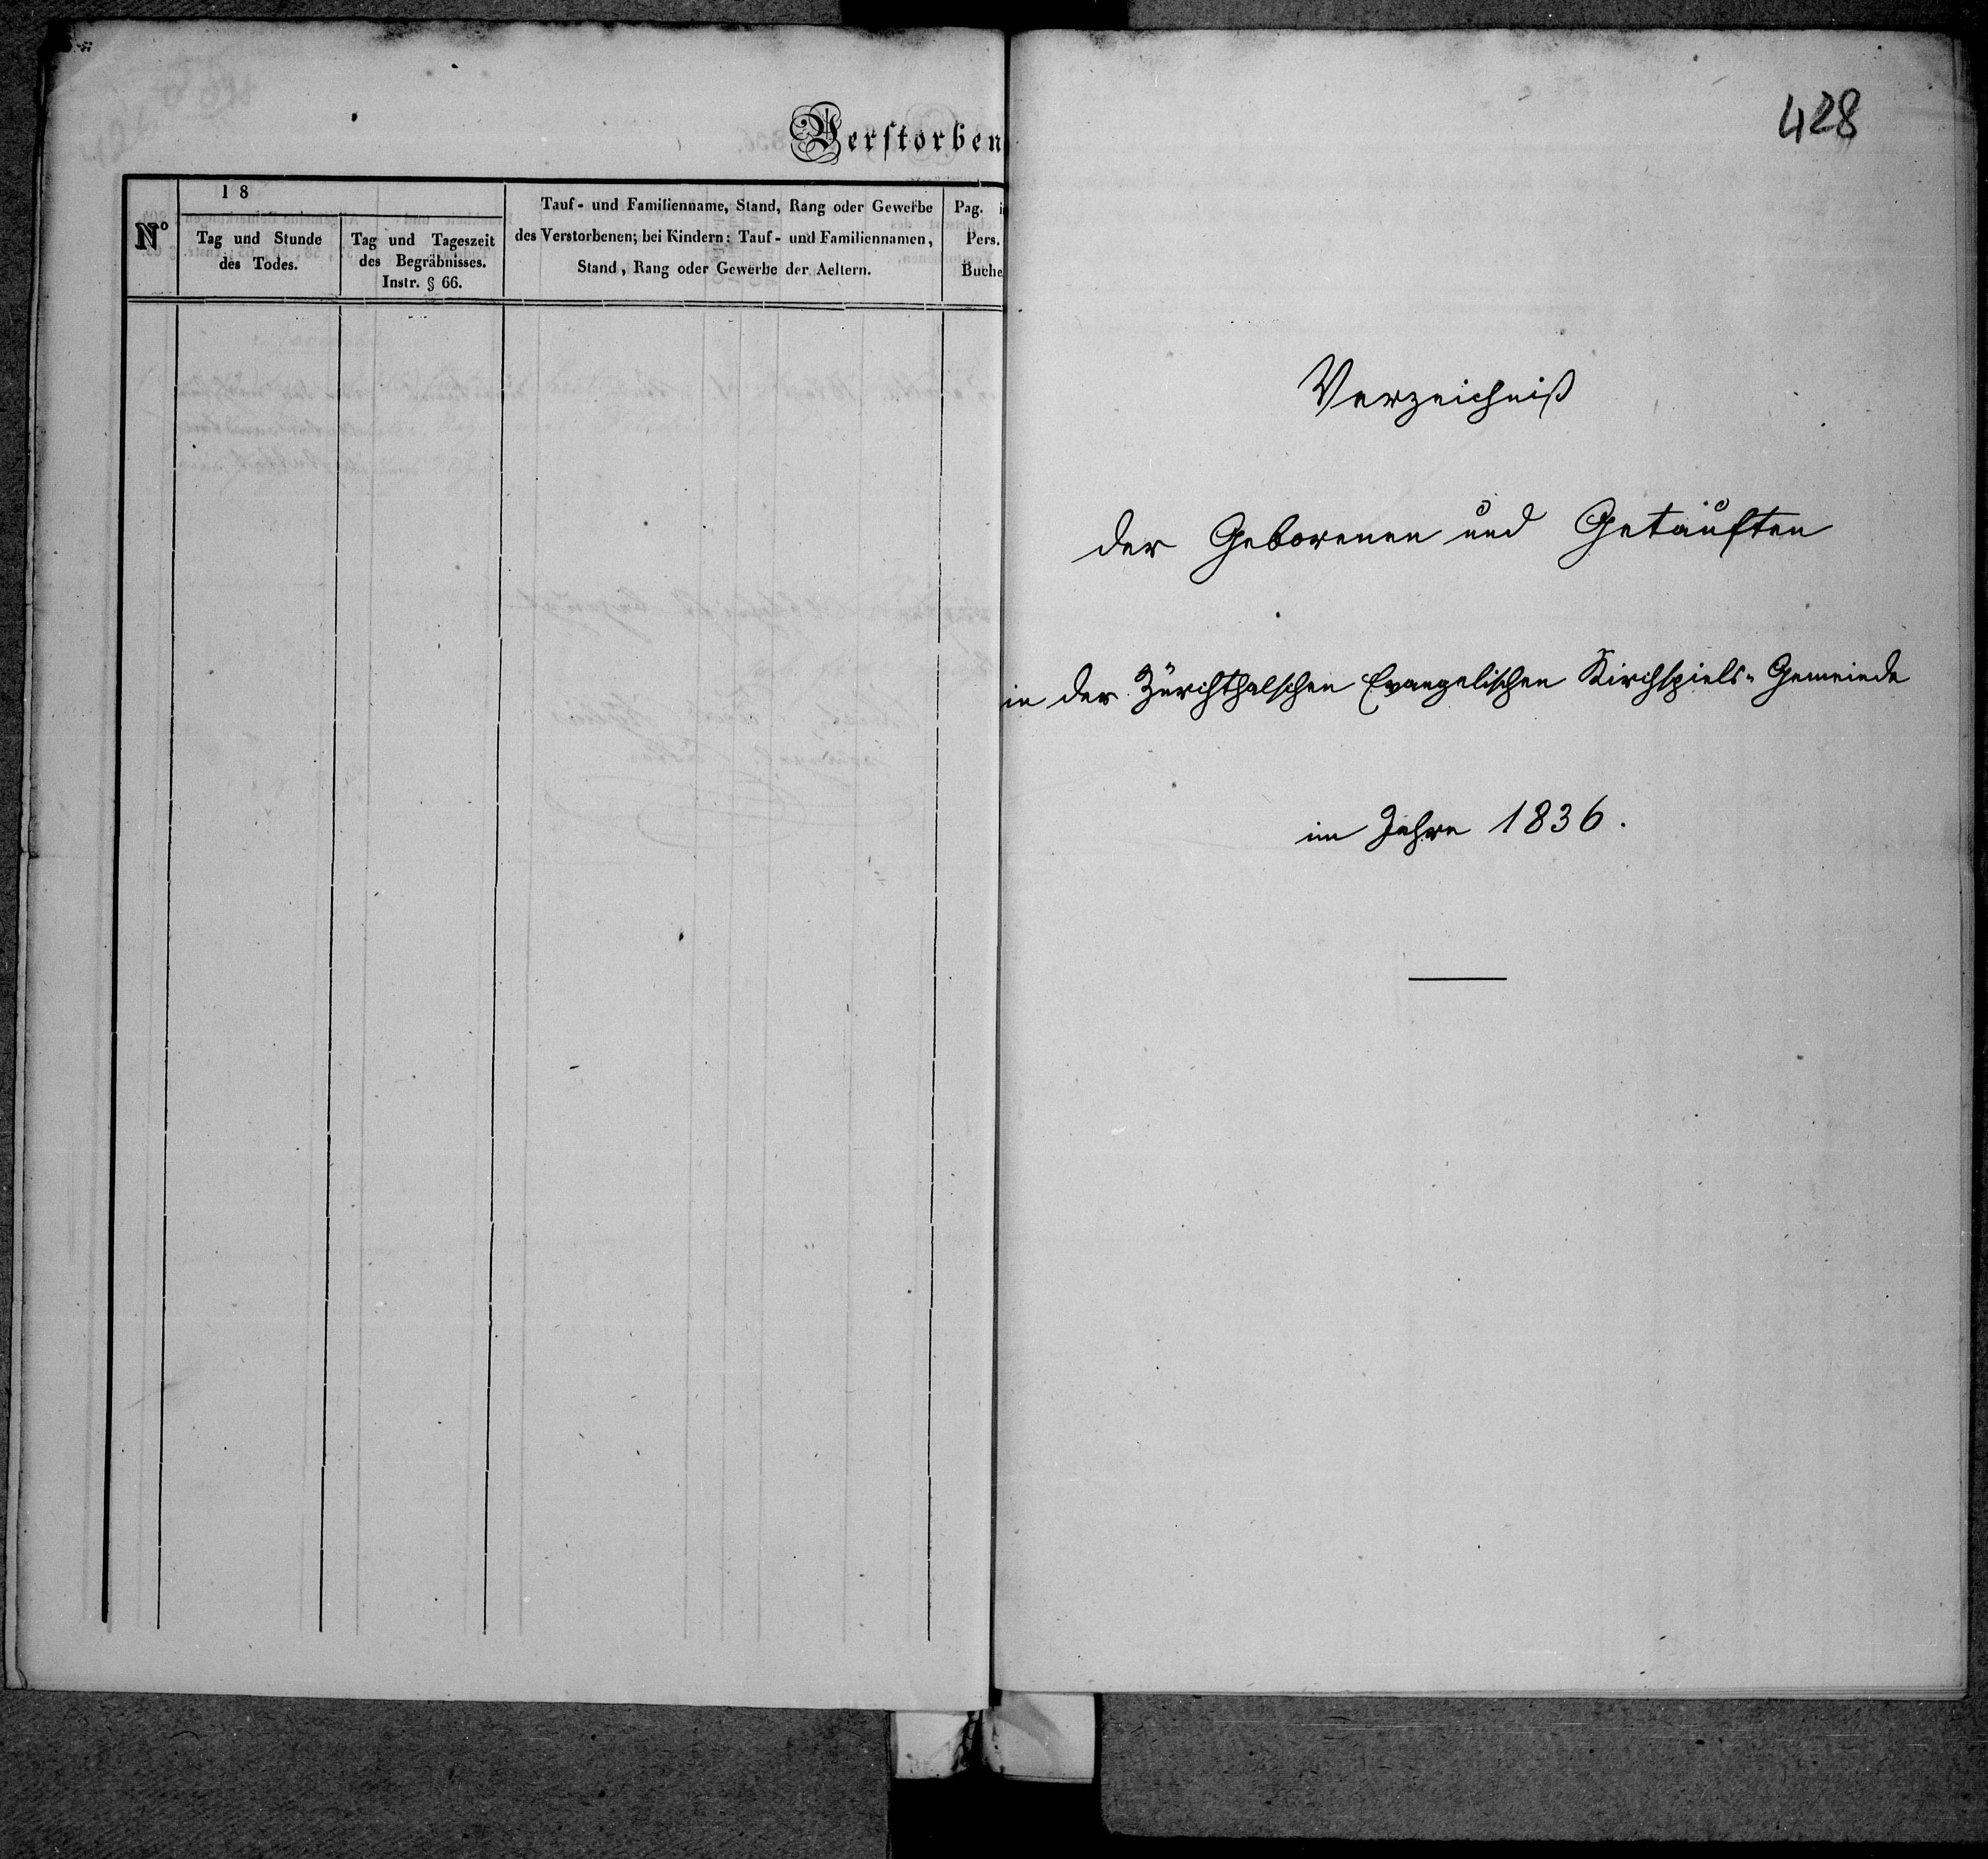 Verstorben
No
18
Tag und Stunde
des Todes.
Tag und Tageszeit
des Begräbnisses.
Instr. § 66.
Tauf- und Familienname, Stand, Rang oder Gewerbe
des Verstorbenen; bei Kindern: Tauf- und Familiennamen,
Stand, Rang oder Gewerbe der Aeltern.
Pag. i
Pers.
Buche
428
Verzeichniß
der Geborenen und Getauften
in der Zürichthalschen Evangelischen Kirchspiels-Gemeinde
im Jahre 1836.